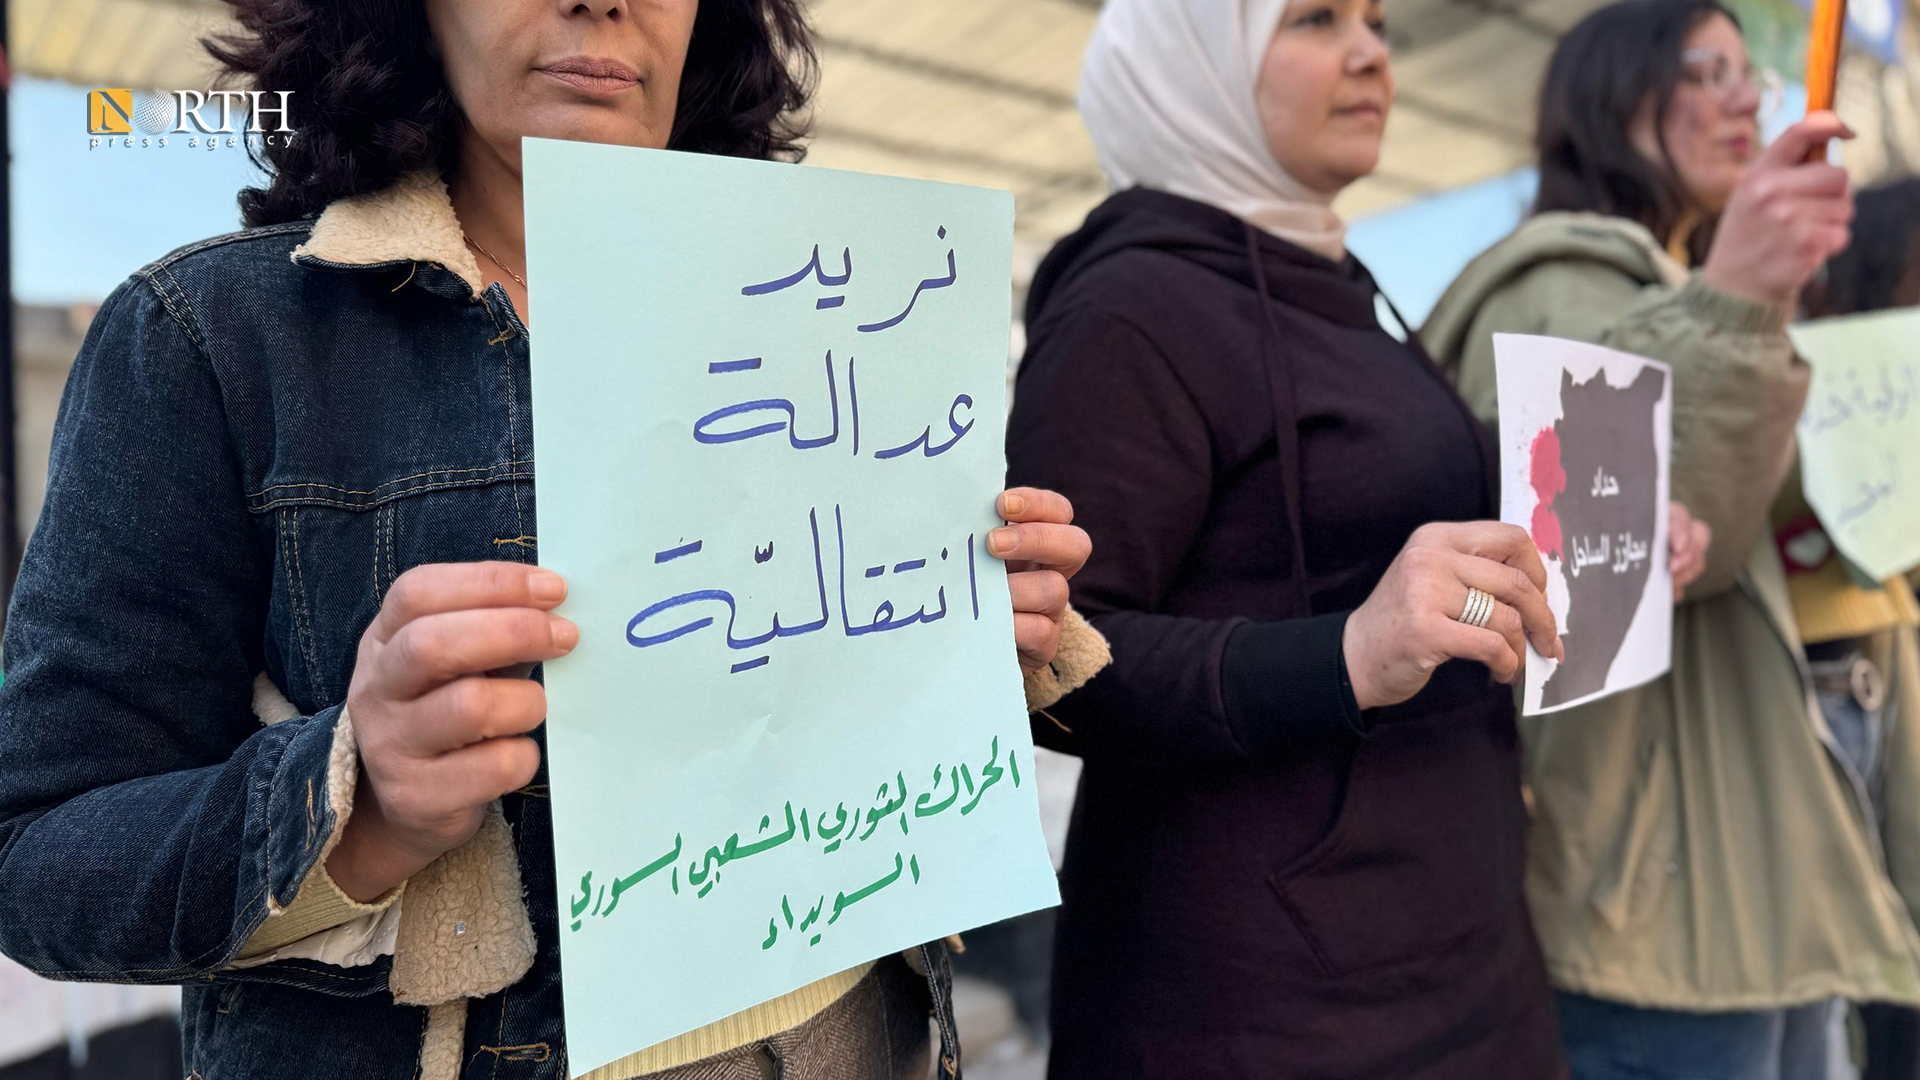 NORTH
press agency
نريد
عدالة
انتقاليّة
الحراك الثوري الشعبي السوري
السويداء
حداد
مجازر الساحل